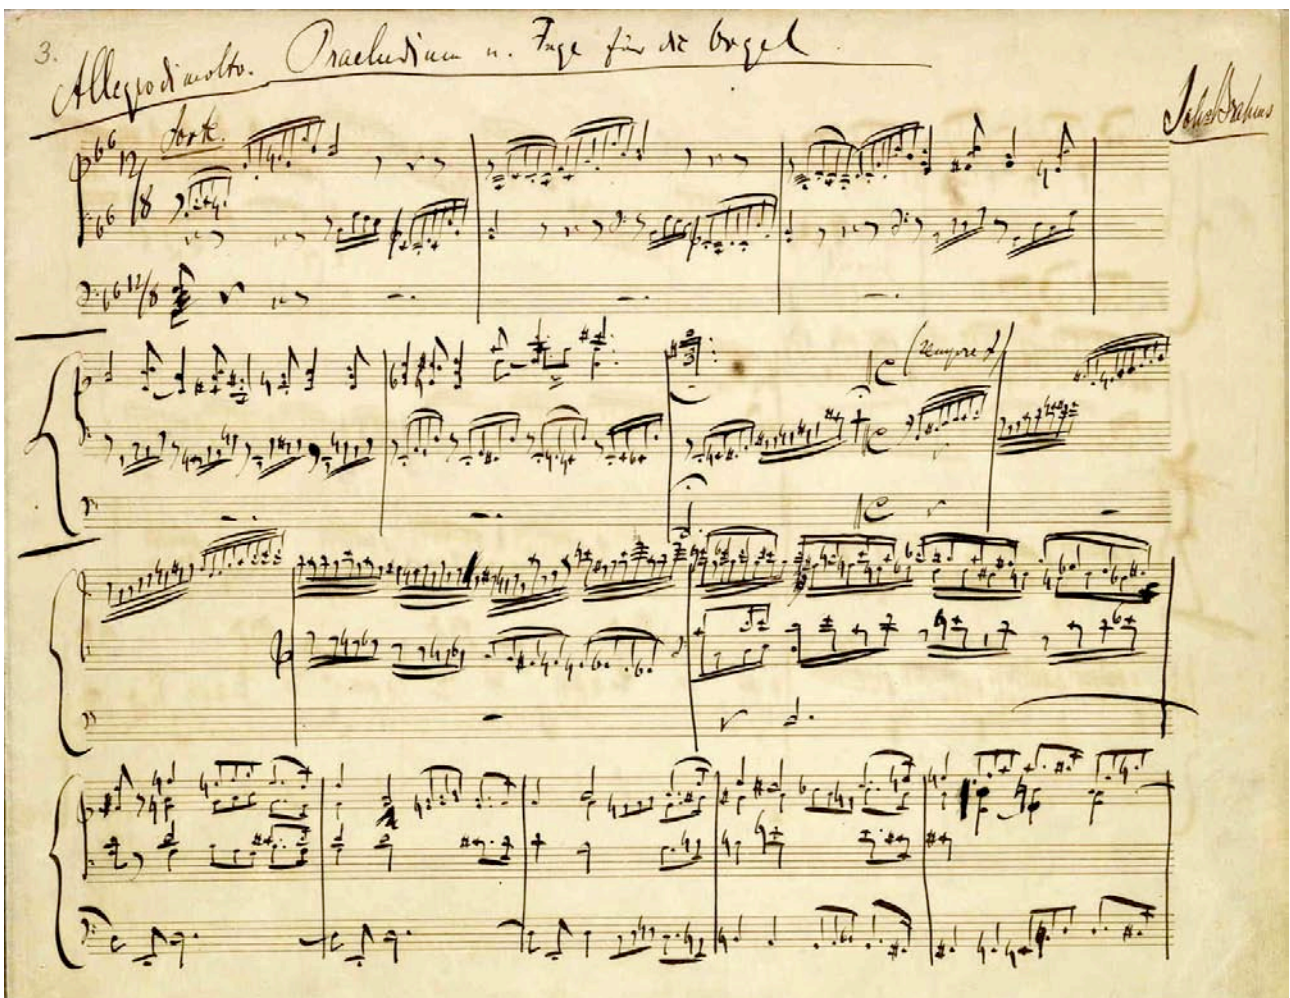 3.
Allegro di molto. Praeludium u. Fuge für die Orgel.
Joh. Brahms
forte.
12/8
12/8
(sempre f)